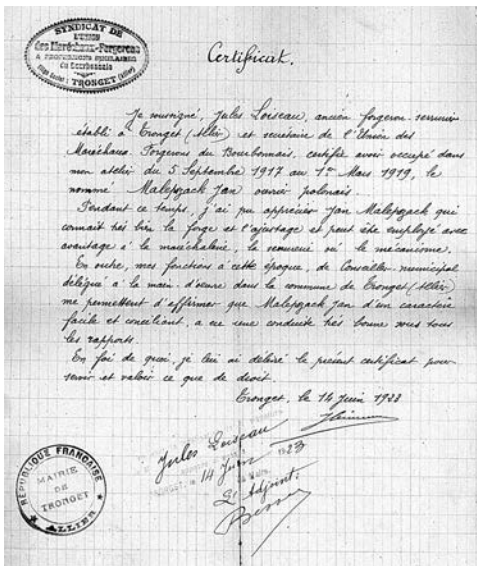 SYNDICAT DE
L'UNION
des Maréchaux-Forgerons
& PROFESSIONS SIMILAIRES
du Bourbonnais
Siège Social : TRONGET (Allier)
Certificat.
Je soussigné, Jules Loiseau, ancien forgeron-serrurier
établi à Tronget (Allier) et secrétaire de l'Union des
Maréchaux-Forgerons du Bourbonnais, certifie avoir occupé dans
mon atelier du 5 Septembre 1917 au 1er Mars 1919, le
nommé Malepszack Jan ouvrier polonais.
Pendant ce temps, j'ai pu apprécier Jan Malepszack qui
connait très bien la forge et l'ajustage et peut être employé avec
avantage à la maréchalerie, la serrurerie ou le mécanisme.
En outre, mes fonctions à cette époque, de Conseiller municipal
délégué à la main-d'œuvre dans la commune de Tronget (Allier)
me permettent d'affirmer que Malepszack Jan d'un caractère
facile et conciliant, a eu une conduite très bonne sous tous
les rapports.
En foi de quoi, je lui ai délivré le présent certificat pour
servir et valoir ce que de droit.
Tronget, le 14 Juin 1923
Jules Loiseau
14 Juin 1923
L'Adjoint:
RÉPUBLIQUE FRANÇAISE
MAIRIE
DE
TRONGET
ALLIER